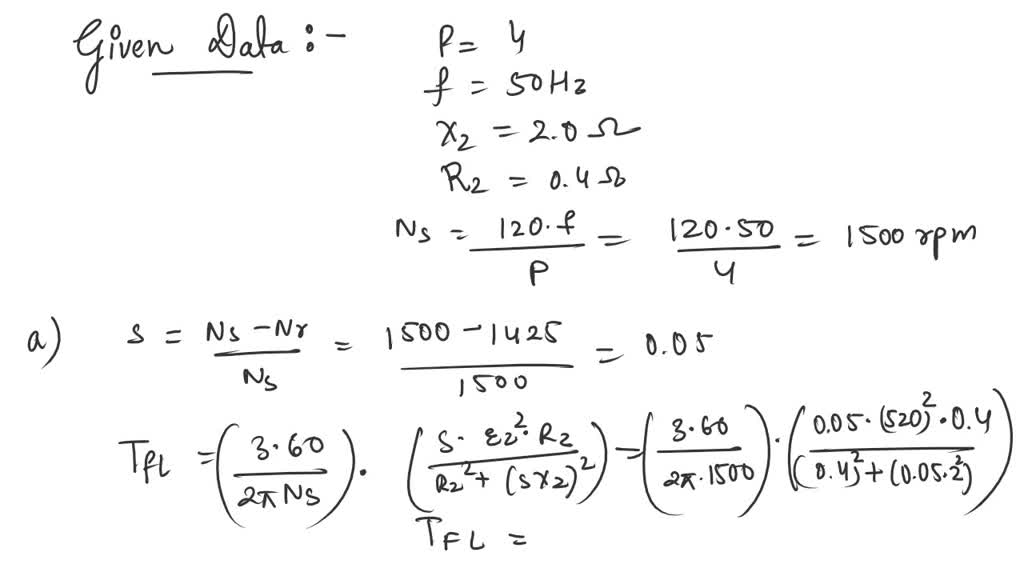 Given Data :-
P = 4
f = 50Hz
X₂ = 2.0 Ω
R₂ = 0.4 Ω
Ns = 120·f / P = 120·50 / 4 = 1500 rpm
a) s = Ns - Nr / Ns = 1500 - 1425 / 1500 = 0.05
TfL = (3·60 / 2π Ns) · (S· E₂²· R₂ / R₂² + (SX₂)²) = (3·60 / 2π·1500) · (0.05·(520)²·0.4 / (0.4)² + (0.05·2²))
TFL =